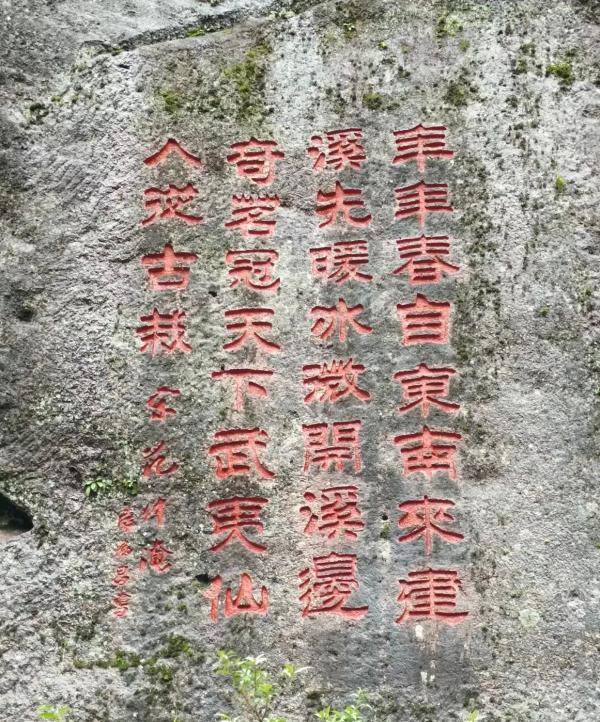 年年春自東南來建
溪先暖冰微開溪邊
奇茗冠天下武夷仙
人從古栽 宋范仲淹